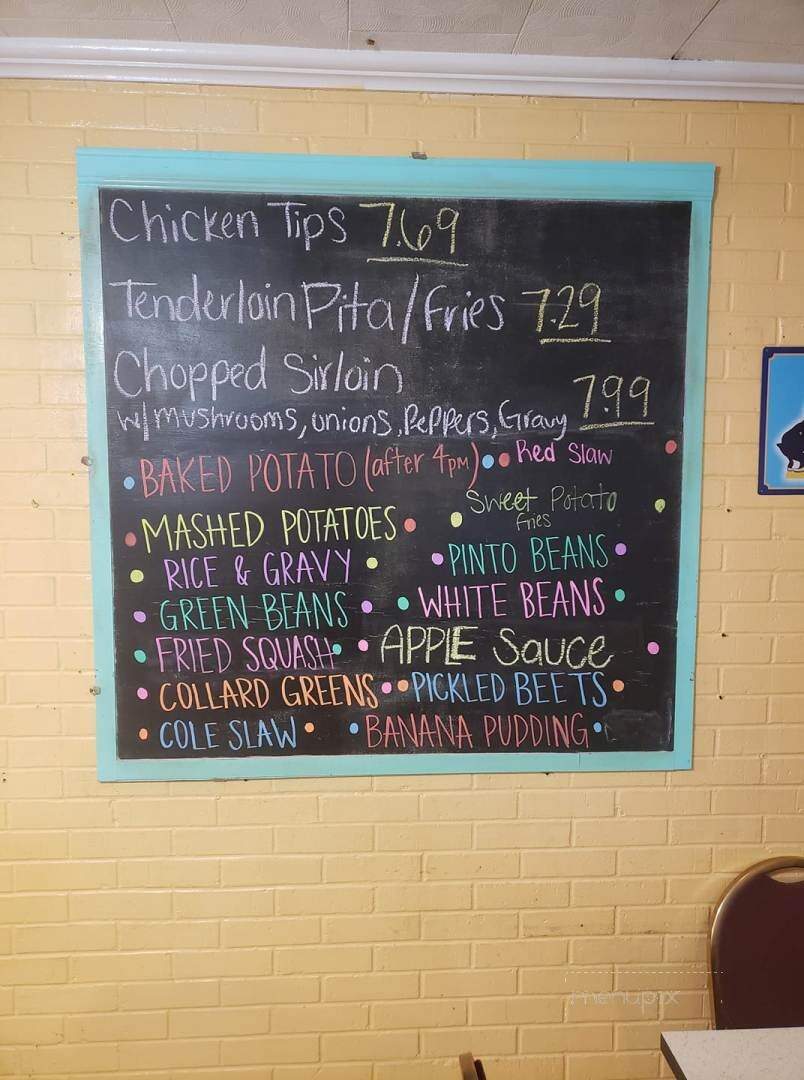 Chicken Tips 7.69
Tenderloin Pita/Fries 7.29
Chopped Sirloin
w/mushrooms, onions, Peppers, Gravy 7.99
BAKED POTATO (after 4pm)
Red Slaw
Sweet Potato
fries
MASHED POTATOES
RICE & GRAVY
PINTO BEANS
GREEN BEANS
WHITE BEANS
FRIED SQUASH
APPLE Sauce
COLLARD GREENS
PICKLED BEETS
COLE SLAW
BANANA PUDDING
menupix